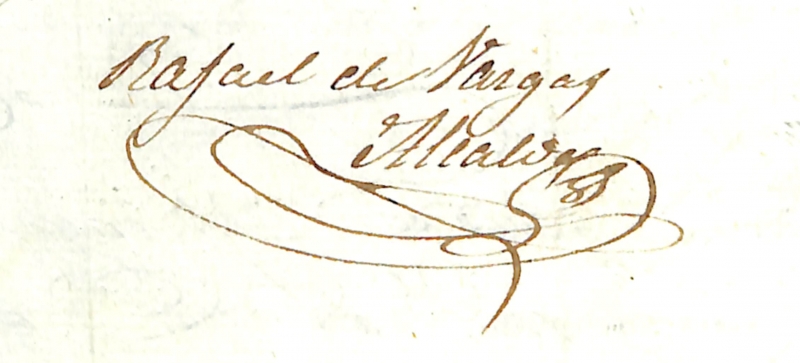 Rafael de Vargas
Alcalde